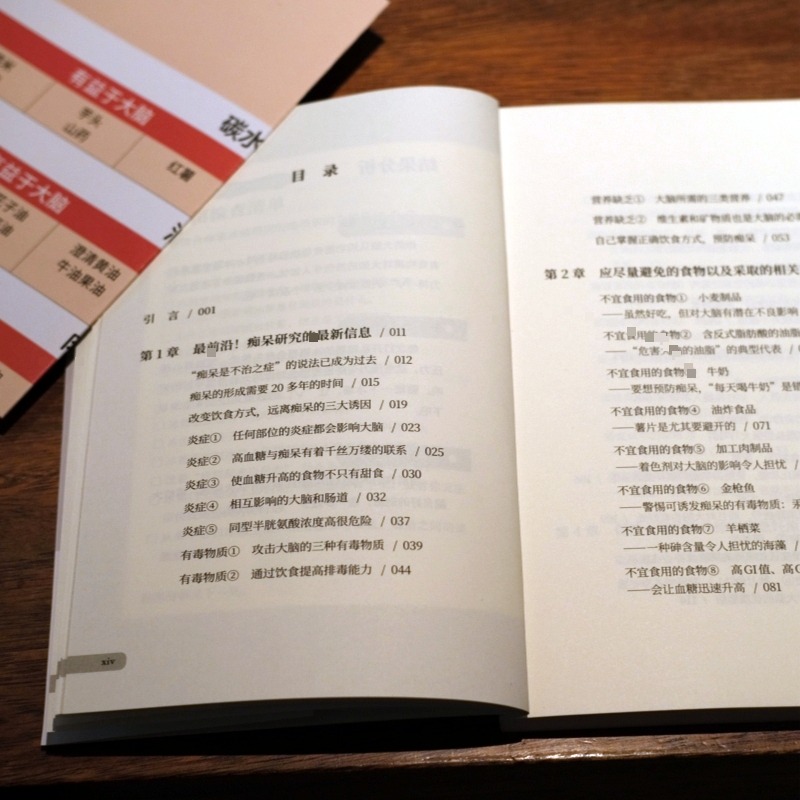 有益于大脑
碳水
芋头
山药
红薯
有益于大脑
澄清黄油
牛油果油
目 录
引 言 / 001
第 1 章 最前沿！痴呆研究的最新信息 / 011
“痴呆是不治之症”的说法已成为过去 / 012
痴呆的形成需要 20 多年的时间 / 015
改变饮食方式，远离痴呆的三大诱因 / 019
炎症① 任何部位的炎症都会影响大脑 / 023
炎症② 高血糖与痴呆有着千丝万缕的联系 / 025
炎症③ 使血糖升高的食物不只有甜食 / 030
炎症④ 相互影响的大脑和肠道 / 032
炎症⑤ 同型半胱氨酸浓度高很危险 / 037
有毒物质① 攻击大脑的三种有毒物质 / 039
有毒物质② 通过饮食提高排毒能力 / 044
xiv
营养缺乏① 大脑所需的三类营养 / 047
营养缺乏② 维生素和矿物质也是大脑的必
自己掌握正确饮食方式，预防痴呆 / 053
第 2 章 应尽量避免的食物以及采取的相关
不宜食用的食物① 小麦制品
——虽然好吃，但对大脑有潜在不良影响
不宜食用的食物② 含反式脂肪酸的油脂
——“危害 的油脂”的典型代表 /
不宜食用的食物 牛奶
——要想预防痴呆，“每天喝牛奶”是错
不宜食用的食物④ 油炸食品
——薯片是尤其要避开的 / 071
不宜食用的食物⑤ 加工肉制品
——着色剂对大脑的影响令人担忧 /
不宜食用的食物⑥ 金枪鱼
——警惕可诱发痴呆的有毒物质：汞
不宜食用的食物⑦ 羊栖菜
——一种砷含量令人担忧的海藻 /
不宜食用的食物⑧ 高GI值、高G
——会让血糖迅速升高 / 081